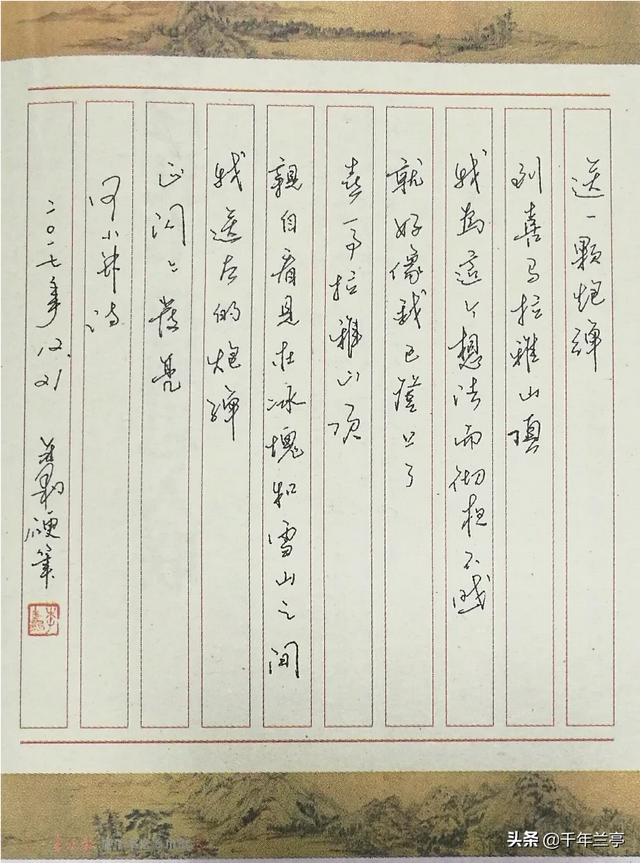 送一顆炮彈
到喜马拉雅山頂
我為這个想法而彻夜不眠
就好像我已登上了
喜马拉雅山顶
親自看見在冰塊和雪山之间
我送去的炮彈
正闪々發亮
何小竹诗
二〇一七年12.21 硬筆
头条 @千年兰亭